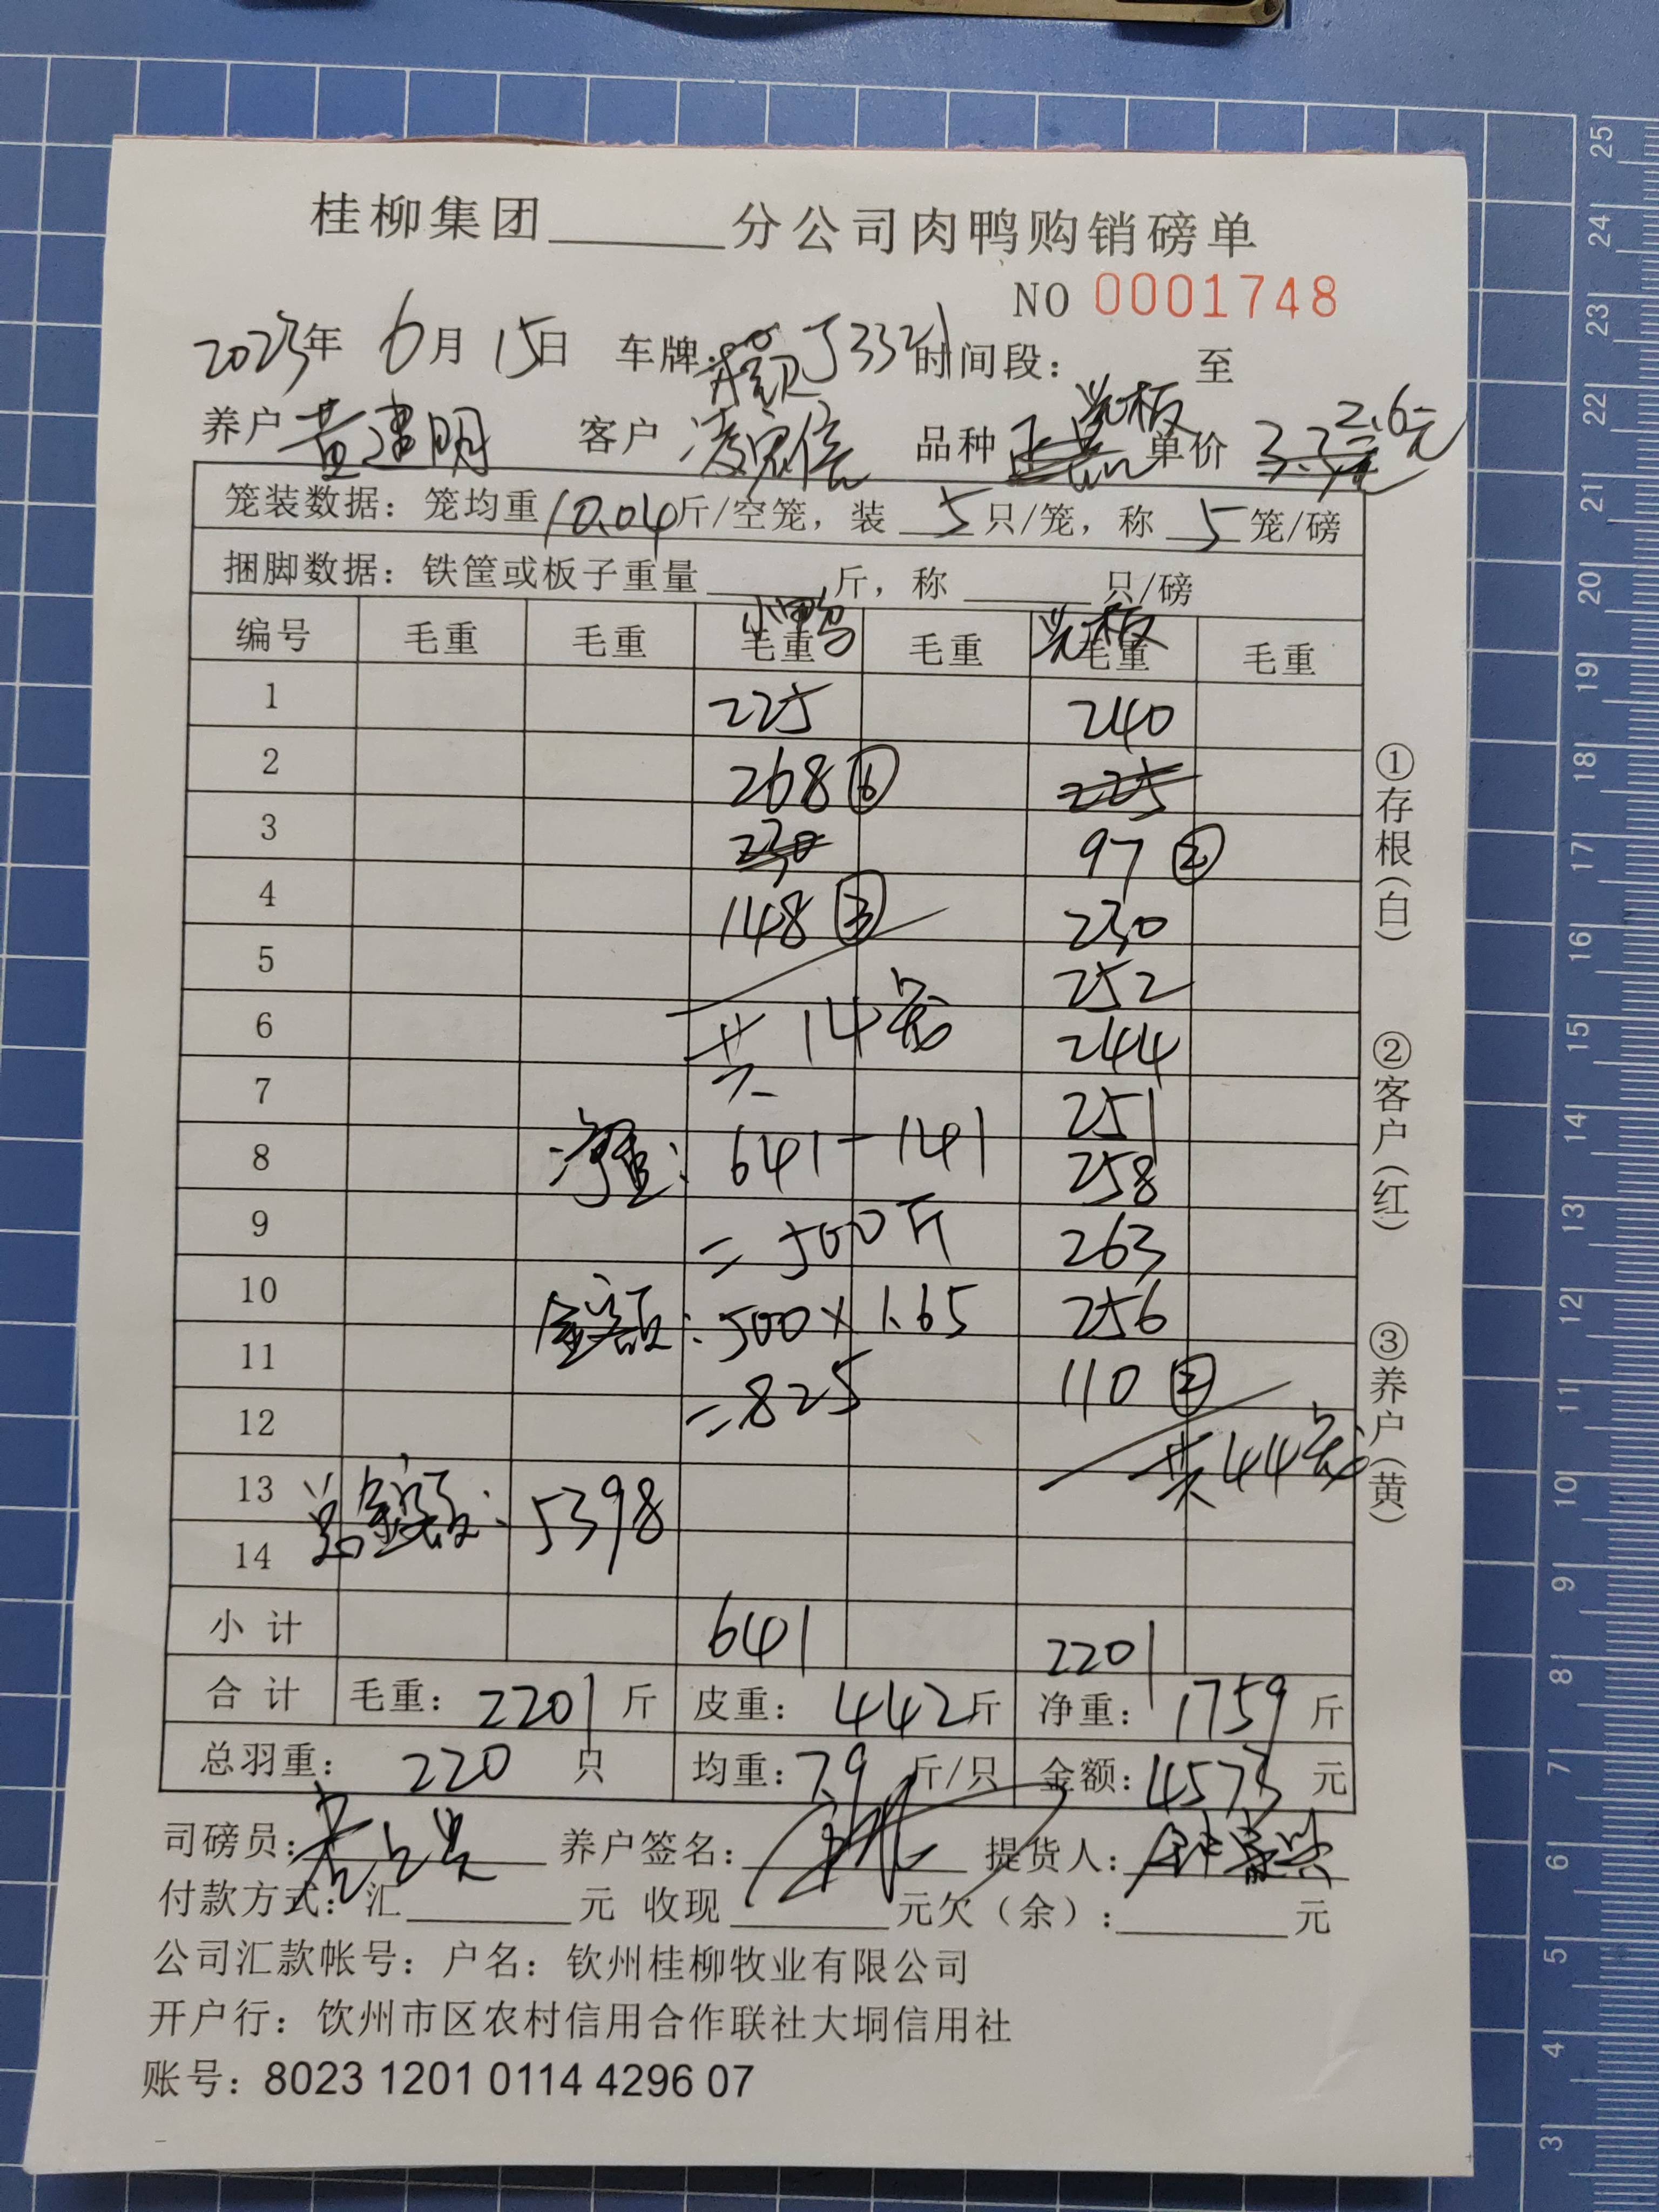 桂柳集团______分公司肉鸭购销磅单
NO 0001748
2023年 6月 15日 车牌: J3321 时间段: 至
光板 2.6元
养户 黄建明 客户 凌宗信 品种 单价
笼装数据: 笼均重10.04斤/空笼, 装 5 只/笼, 称 5 笼/磅
捆脚数据: 铁筐或板子重量______斤, 称______只/磅
小鸭 光板
编号 毛重 毛重 毛重 毛重 毛重 毛重
1 225 240
2 268 ⑥ 225
3 230 97 ②
4 148 ③ 230
5 252
6 共14笼 244
7 251
8 净重: 641-141 258
9 =500斤 263
10 金额: 500×1.65 256
11 =825 110 ②
12 共44笼
13 总金额: 5398
14
小计 641 2201
合计 毛重: 2201 斤 皮重: 442斤 净重: 1759 斤
总羽重: 220 只 均重: 7.9 斤/只 金额: 4573 元
司磅员: 养户签名: 提货人:
付款方式: 汇______元 收现______元欠(余):______元
公司汇款帐号: 户名: 钦州桂柳牧业有限公司
开户行: 饮州市区农村信用合作联社大垌信用社
账号: 8023 1201 0114 4296 07
①存根(白)
②客户(红)
③养户(黄)
25
24
23
22
21
20
19
18
17
16
15
14
13
12
11
10
9
8
7
6
5
4
3